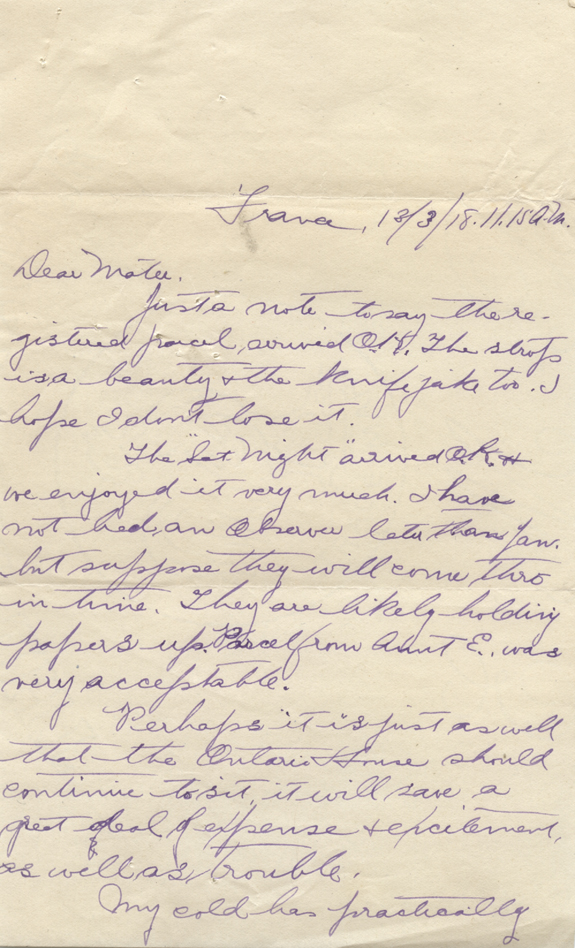 France, 13/3/18. 11.15 A.M.
Dear Mater.
Just a note to say the re-
gistered parcel, arrived O.K. The strop
is a beauty & the knife jake too. I
hope I don't lose it.
The "Sat Night" arrived O.K. &
we enjoyed it very much. I have
not had, an Observer later than Jan.
but suppose they will come thro
in time. They are likely holding
papers up. Parcel from Aunt E. was
very acceptable.
Perhaps it is just as well
that the Ontario House should
continue to sit, it will save a
great deal of expense & excitement,
as well as trouble.
My cold has practically